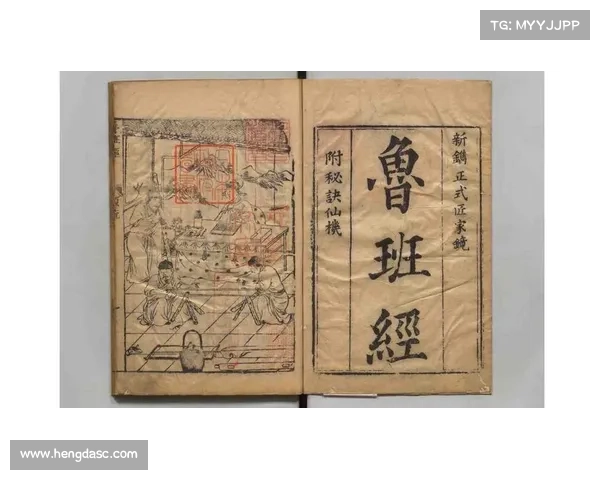 TG: MYYJJPP
新鐫正式匠家鏡
魯班經
附秘訣仙機
www.hengdasc.com